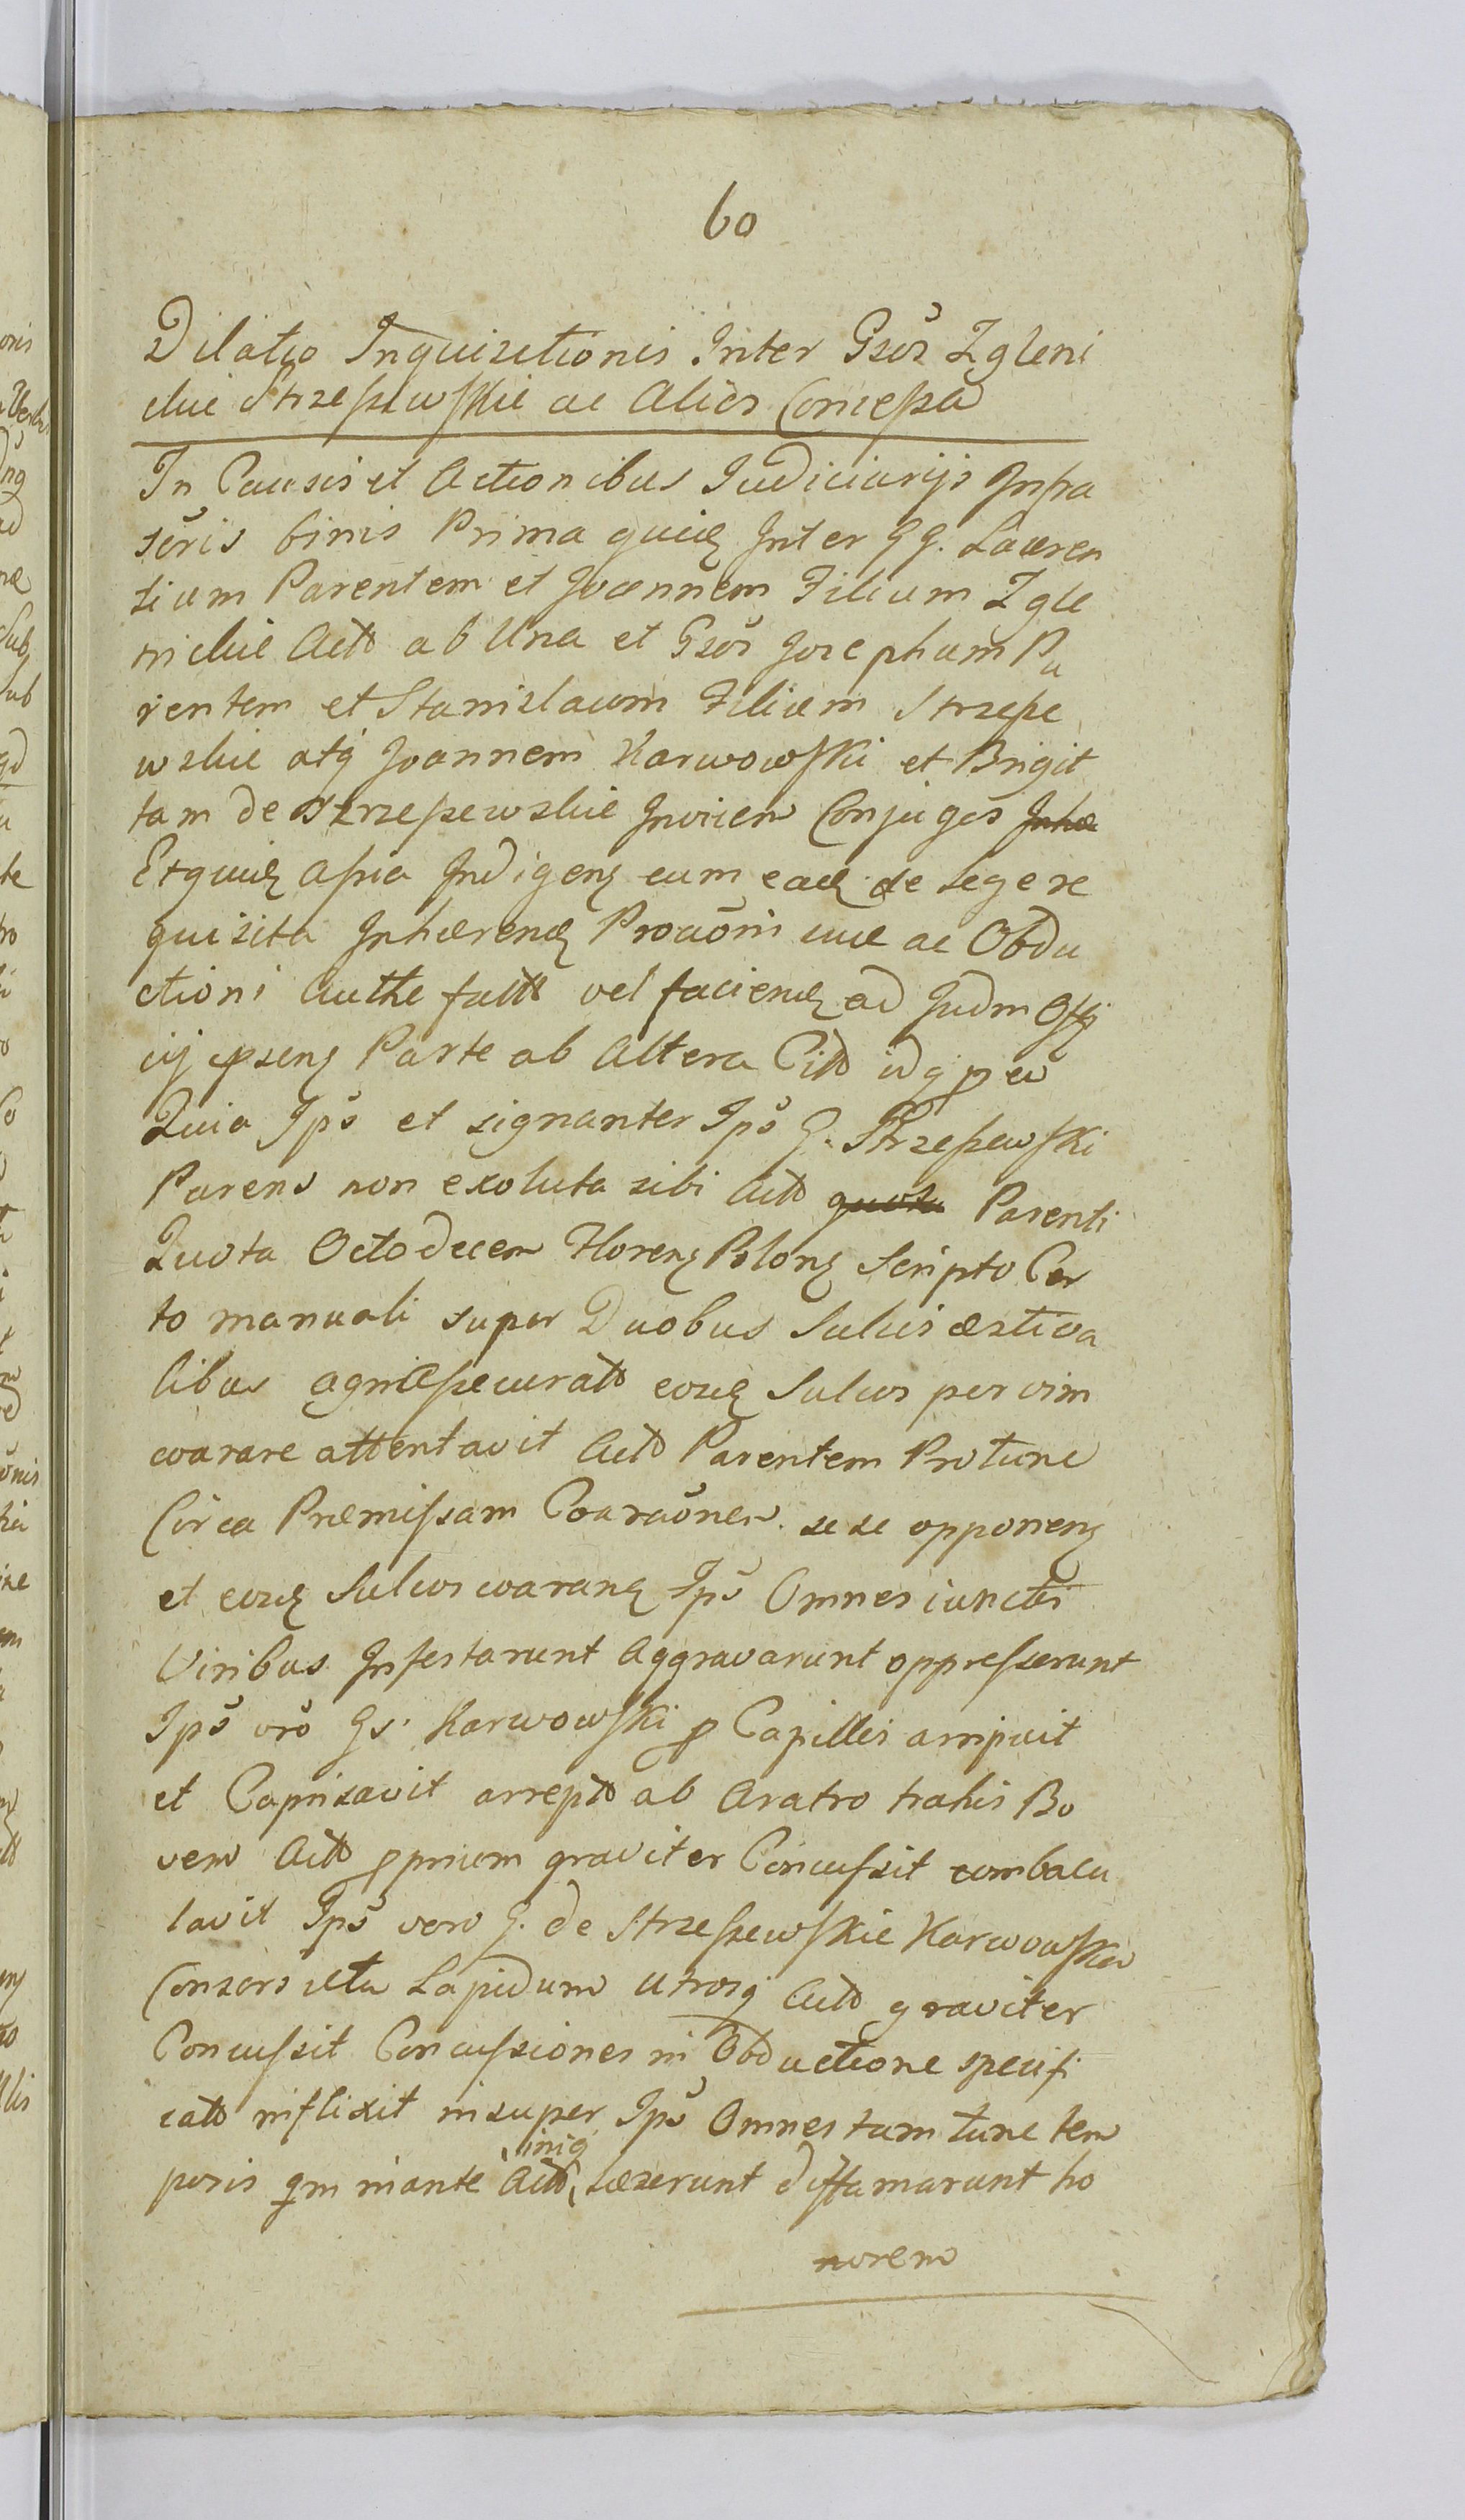 60
Dilatio Inquisitionis Inter Gsos Zgleni
ckie Strzeszewskie ac Alios Concessa
In Causis et Actionibus Judiciarijs Infra
scris binis Prima quid Inter GG. Lauren
tium Parentem et Joannem Filium Zgle
nickie Act ab Una et Gsos Josephum Pa
rentem et Stanislaum Filium Strzesze
wskie atq Joannem Karwowski et Brigit
tam de Strzeszewskie Invicem Conjuges
Inhærend Procaoni suæ ac Obdu
ctioni Authe factt vel faciend ad Judm Offi
cij pseng Parte ab Altera Citt idq p eo
Quia Ips et signanter Ips G. Strzeszewski
Parens non exoluta sibi Act quota Parenti
Quota Octodecem Floreng Polong Scripto Cer
to manuali super Duobus Sulcis æstiva
libus eosd Sulcos per vim
coarare attentavit Act Parentem Protunc
Circa Præmissam Coaraonem sese opponeng
et eosd Sulcos coarang Ips Omnes iunctis
Viribus Infestarunt Aggravarunt oppresserunt
Ips vro Gs. Karwowski p Capilles arripuit
et Caprisavit arrept ab Aratro trahis Bo
vem Act pprium graviter Concussit combacu
lavit Ips vero G. de Strzeszewskie Karwowska
Consors ictu Lapidum utrosq Act graviter
Concussit Concussiones in Obductione specifi
catt inflixit insuper Ips Omnes tam tunc tem
poris qm inante Act iniq læserunt diffamarunt ho
norem